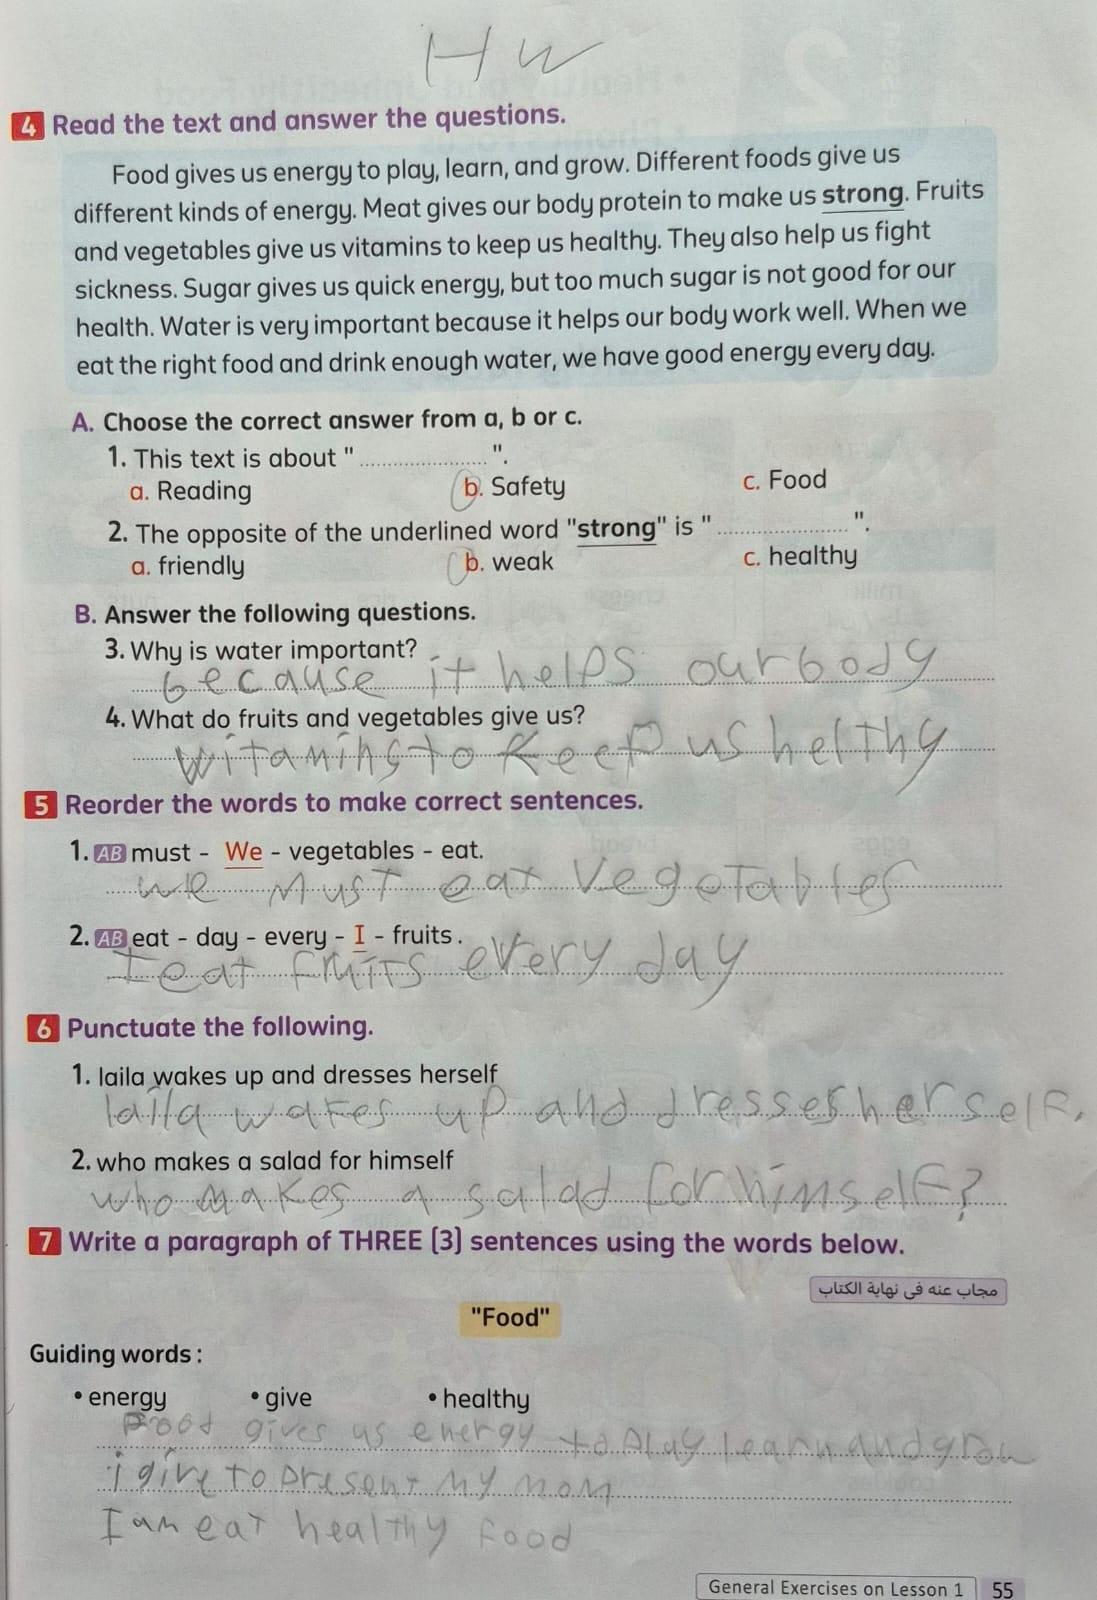 HW
4 Read the text and answer the questions.
Food gives us energy to play, learn, and grow. Different foods give us
different kinds of energy. Meat gives our body protein to make us strong. Fruits
and vegetables give us vitamins to keep us healthy. They also help us fight
sickness. Sugar gives us quick energy, but too much sugar is not good for our
health. Water is very important because it helps our body work well. When we
eat the right food and drink enough water, we have good energy every day.
A. Choose the correct answer from a, b or c.
1. This text is about "....................".
a. Reading b. Safety c. Food
2. The opposite of the underlined word "strong" is "....................".
a. friendly b. weak c. healthy
B. Answer the following questions.
3. Why is water important?
because it helps our body
4. What do fruits and vegetables give us?
witamins to keep us helthy
5 Reorder the words to make correct sentences.
1. AB must - We - vegetables - eat.
we must eat vegetables
2. AB eat - day - every - I - fruits.
I eat fruits every day
6 Punctuate the following.
1. laila wakes up and dresses herself
laila wakes up and dresses herself.
2. who makes a salad for himself
who makes a salad for himself?
7 Write a paragraph of THREE (3) sentences using the words below.
مجاب عنه فى نهاية الكتاب
"Food"
Guiding words :
• energy • give • healthy
Food gives us energy to play learn and grow
i give to present my mom
I am eat healthy food
General Exercises on Lesson 1 55